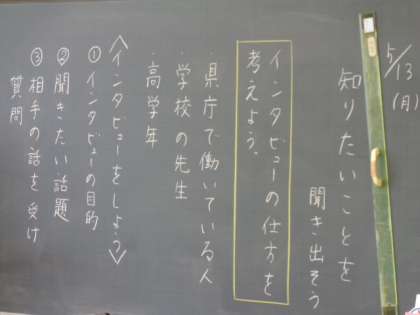 5/13(月)
知りたいことを
聞き出そう
インタビューの仕方を
考えよう。
・県庁で働いている人
・学校の先生
・高学年
〈インタビューをしよう〉
①インタビューの目的
②聞きたい話題
③相手の話を受け
質問